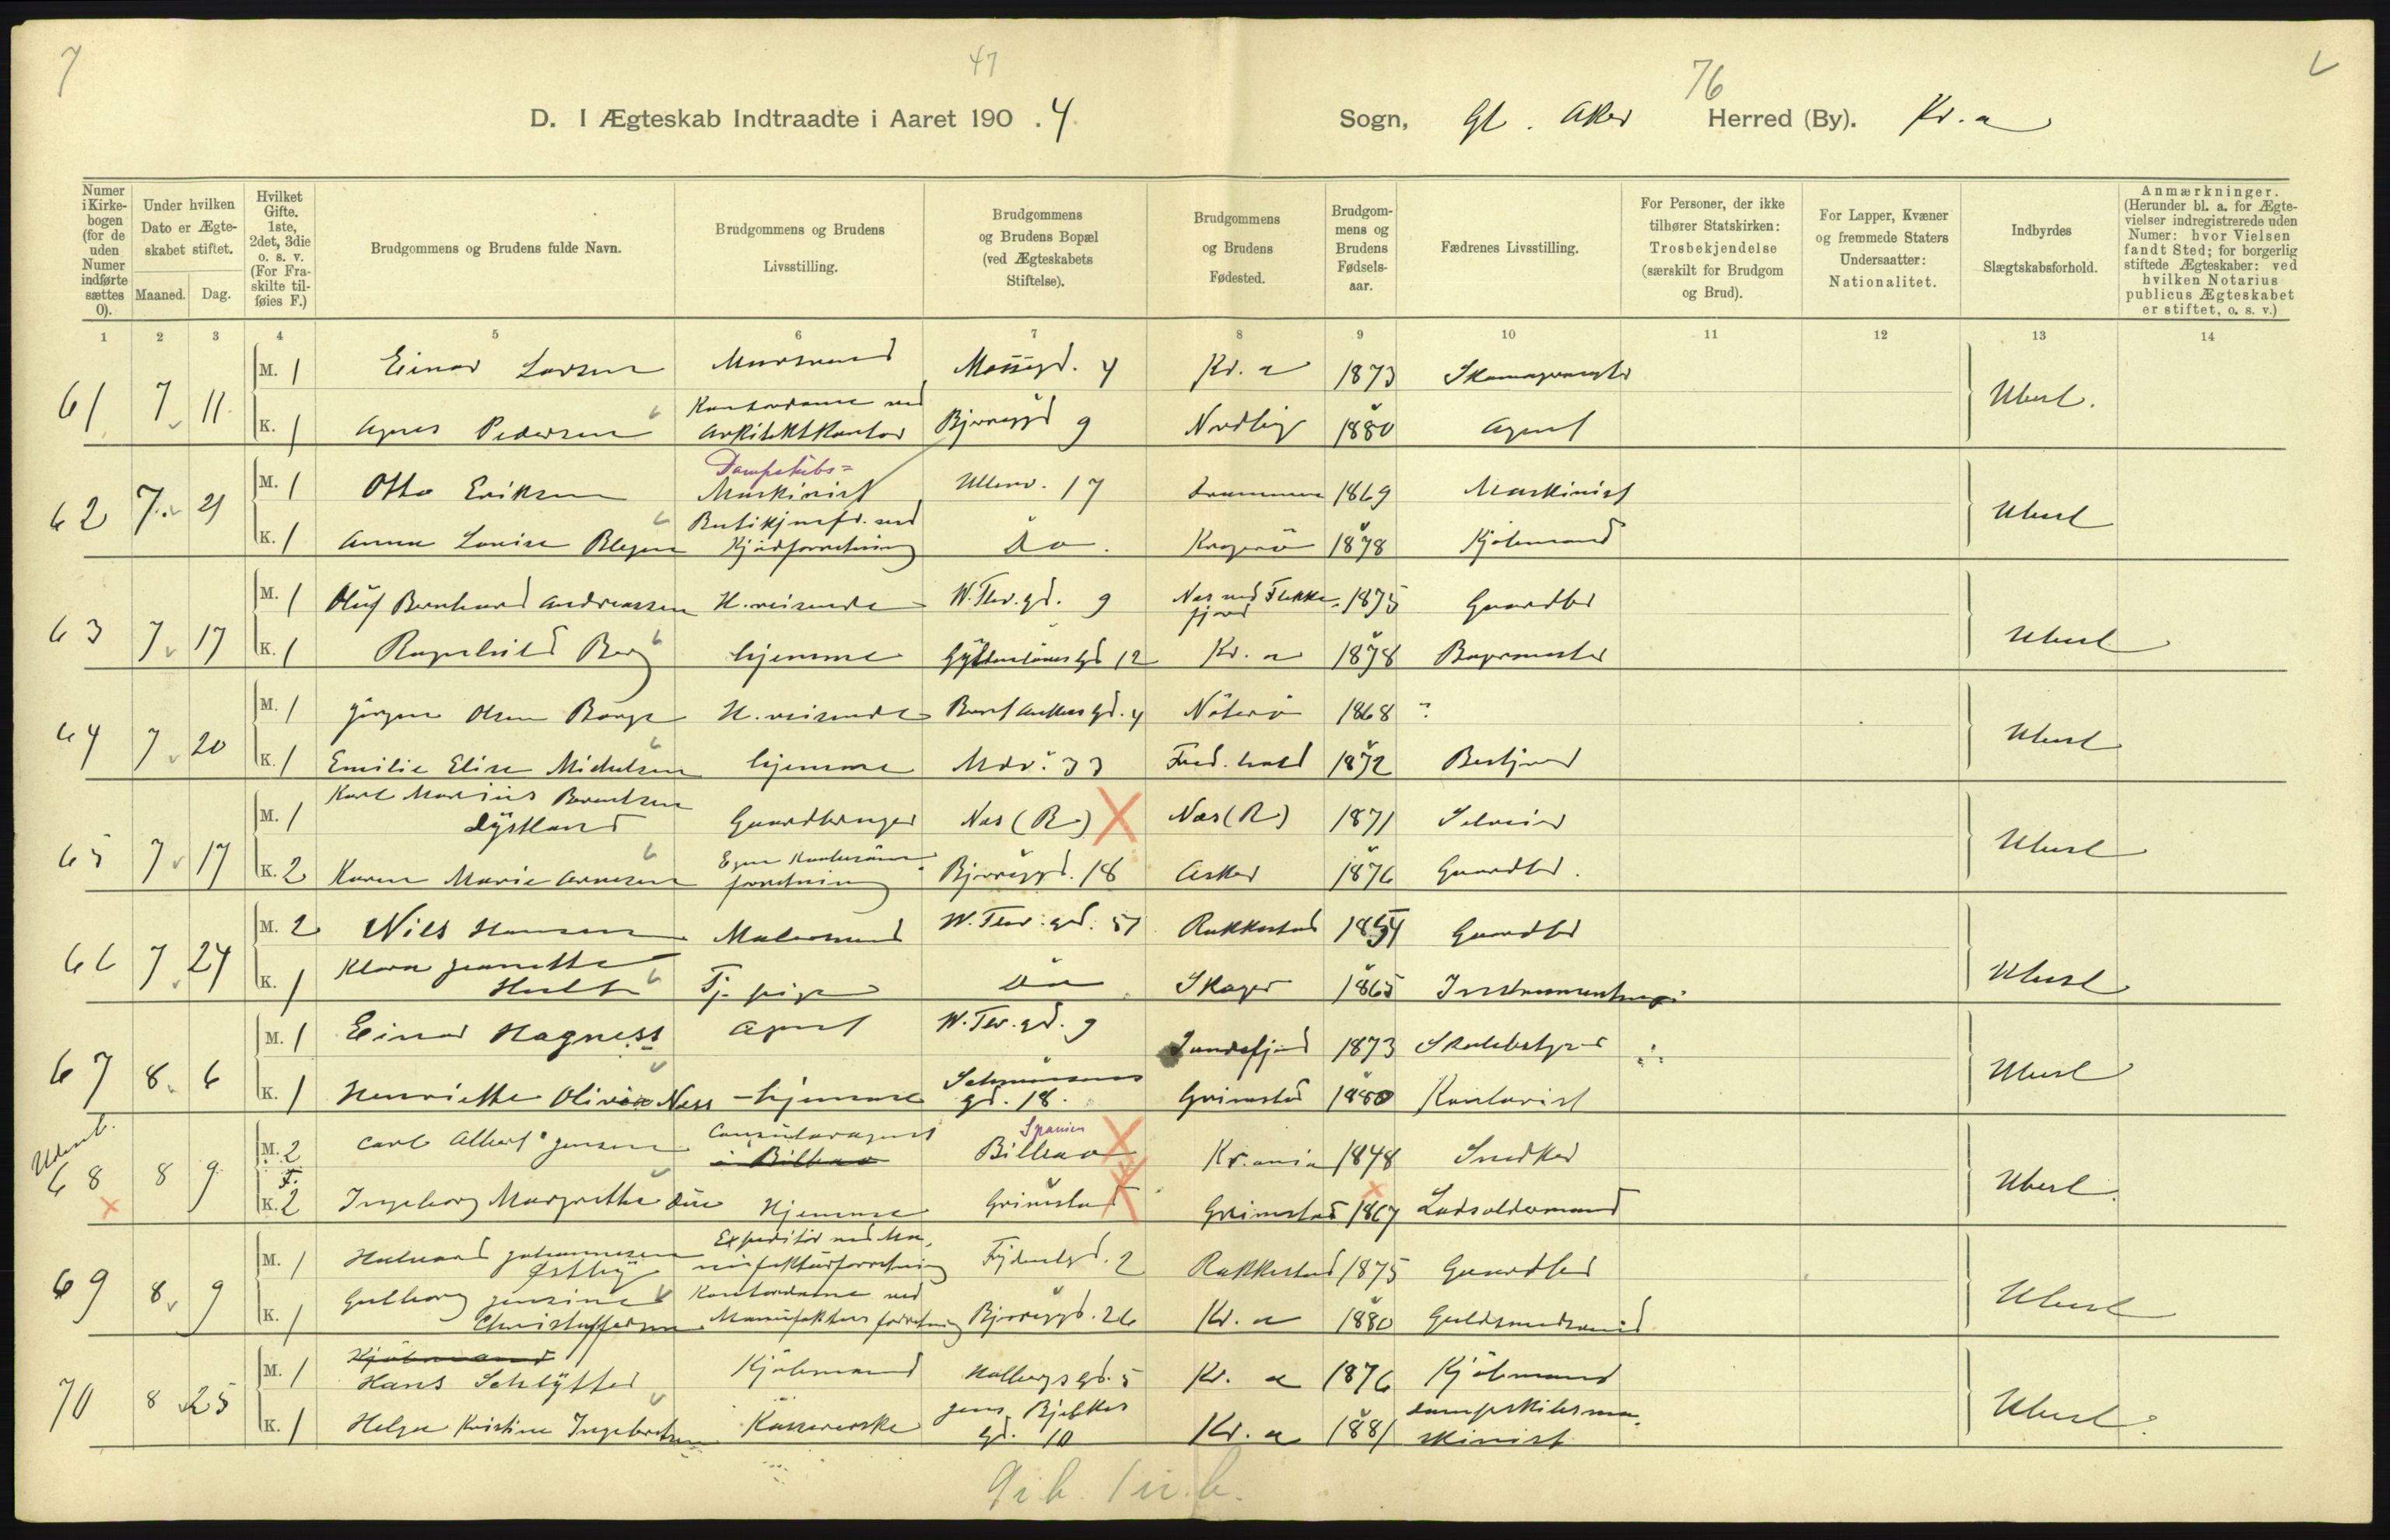 7
47
76
D. I Ægteskab Indtraadte i Aaret 190 . 4
Sogn, Gl. Aker Herred (By). Kr.a
Numer i Kirkebogen (for de uden Numer indførte sættes 0).
Under hvilken Dato er Ægteskabet stiftet.
Maaned. Dag.
Hvilket Gifte. 1ste, 2det, 3die o. s. v. (For Fraskilte tilføies F.)
Brudgommens og Brudens fulde Navn.
Brudgommens og Brudens Livsstilling.
Brudgommens og Brudens Bopæl (ved Ægteskabets Stiftelse).
Brudgommens og Brudens Fødested.
Brudgommens og Brudens Fødselsaar.
Fædrenes Livsstilling.
For Personer, der ikke tilhører Statskirken: Trosbekjendelse (særskilt for Brudgom og Brud).
For Lapper, Kvæner og fremmede Staters Undersaatter: Nationalitet.
Indbyrdes Slægtskabsforhold.
Anmærkninger. (Herunder bl. a. for Ægtevielser indregistrerede uden Numer: hvor Vielsen fandt Sted; for borgerlig stiftede Ægteskaber: ved hvilken Notarius publicus Ægteskabet er stiftet, o. s. v.)
1 2 3 4 5 6 7 8 9 10 11 12 13 14
61 7 11 M. 1 Einar Larsen Murmand Mossegd. 4 Kr.a 1873 Ubesl.
K. 1 Agnes Pedersen Kontordame ved Arkitektkontor Bjerregd 9 1880 Agent
62 7 21 M. 1 Otto Eriksen Dampskibs= Maskinist Ullevv. 17 Drammen 1869 Maskinist Ubesl
K. 1 Anna Lovise Blegen Butikjomfr. ved Kjødforretning Do. Kragerø 1878 Kjøbmand
63 7 17 M. 1 Oluf Bernhard Andreassen H. reisende W. Thr. gd. 9 Nes ved Flekkefjord 1875 Gaardbr Ubesl.
K. 1 Ragnhild Berg hjemme Gyldenløves gd 12 Kr.a 1878 Bagermester
64 7 20 M. 1 Jørgen Olsen Borge H. reisende Bernt Ankers gd. 4 Nøterø 1868 ? Ubesl
K. 1 Emilie Elise Michelsen hjemme Mdv. 33 Fred.hald 1872
65 7 17 M. 1 Karl Marius Berentsen Dystland Gaardbruger Nes (R) Næs (R) 1871 Ubesl
K. 2 Karen Marie Arnesen forretning Bjerregd. 18 Asker 1876 Gaardbr.
66 7 24 M. 2 Nils Hansen Malermand W. Thr. gd. 51 Rakkestad Gaardbr Ubesl
K. 1 Klara Jeanette Holt Tj. pige Do Skager 1865
67 8 6 M. 1 Einar Hagness Agent W. Thr. gd. 9 Sandefjord 1873 Skolebestyrer Ubesl
K. 1 Henriette Olivia Ness hjemme Schwensens gd. 18. Grimstad 1880 Kontorist
Udenb. 68 8 9 M. 2 F. Carl Albert Jensen Consularagent i Bilbao Spanien Bilbao Kr.ania 1848 Snedker Ubesl.
K. 2 Ingeborg Margrethe Due Hjemme Grimstad Grimstad 1867 Lodsoldermand
69 8 9 M. 1 Halvard Johannesen Østby Expeditør ved Manufakturforretning 2 Rakkestad 1875 Gaardbr Ubesl
K. 1 Gulborg Jensine Christoffersen Kontordame ved Manufakturforretning Bjerregd. 26 Kr.a 1880 Guldsmedsvend
70 8 25 M. 1 Kjøbmand Hans Schlytter Kjøbmand Holbergs gd. 5 Kr.a 1876 Kjøbmand Ubesl.
K. 1 Helga Kristine Ingebretsen Kassererske Jens Bjelkes gd. 10 Kr.a 1881 Dampskibsmaskinist
9 i b. 1 u. b.